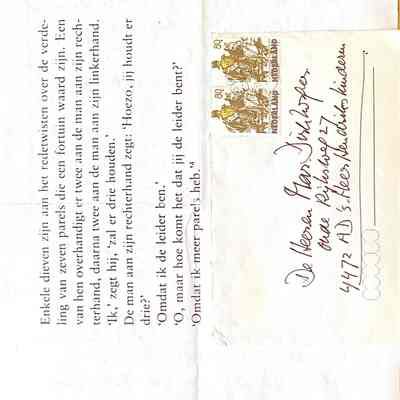 Enkele dieven zijn aan het redetwisten over de verde-
ling van zeven parels die een fortuin waard zijn. Een
van hen overhandigt er twee aan de man aan zijn rech-
terhand, daarna twee aan de man aan zijn linkerhand.
'Ik,' zegt hij, 'zal er drie houden.'
De man aan zijn rechterhand zegt: 'Hoezo, jij houdt er
drie?'
'Omdat ik de leider ben.'
'O, maar hoe komt het dat jij de leider bent?'
'Omdat ik meer parels heb.'
80 NEDERLAND
80 NEDERLAND
De Heeren
Oude Rijksweg 27
4472 AD 's Heer Hendrikskinderen